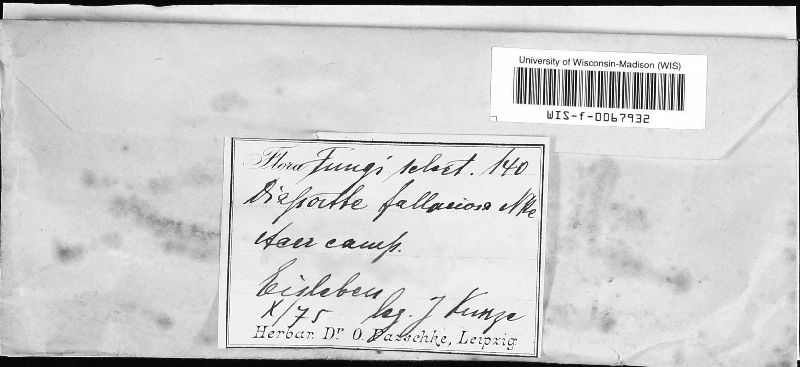 University of Wisconsin-Madison (WIS)
WIS-f-0067932
Flora Fungi select. 140
Diaporthe fallaciosa Nke
Acer camp.
Eisleben
X/75 leg. J Kunze
Herbar. Dr. O. Pazschke, Leipzig